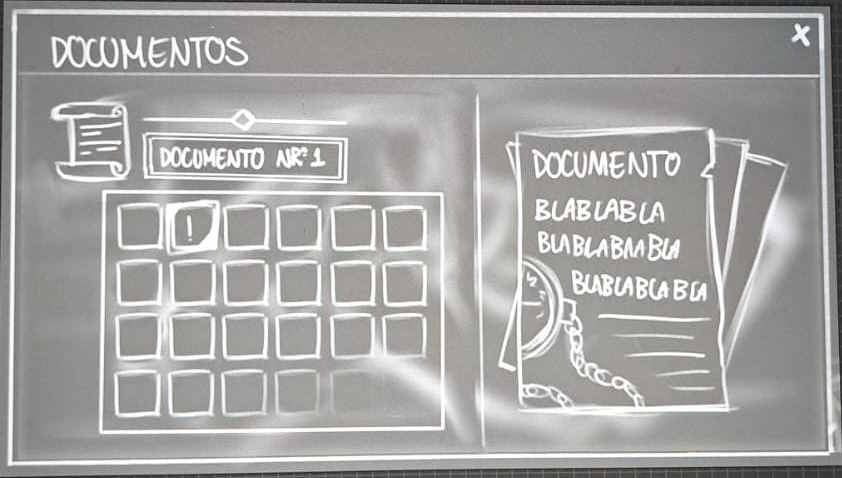 DOCUMENTOS
X
DOCUMENTO NR:1
!
DOCUMENTO
BLABLABLA
BLABLABLABLA
BLABLABLABLA